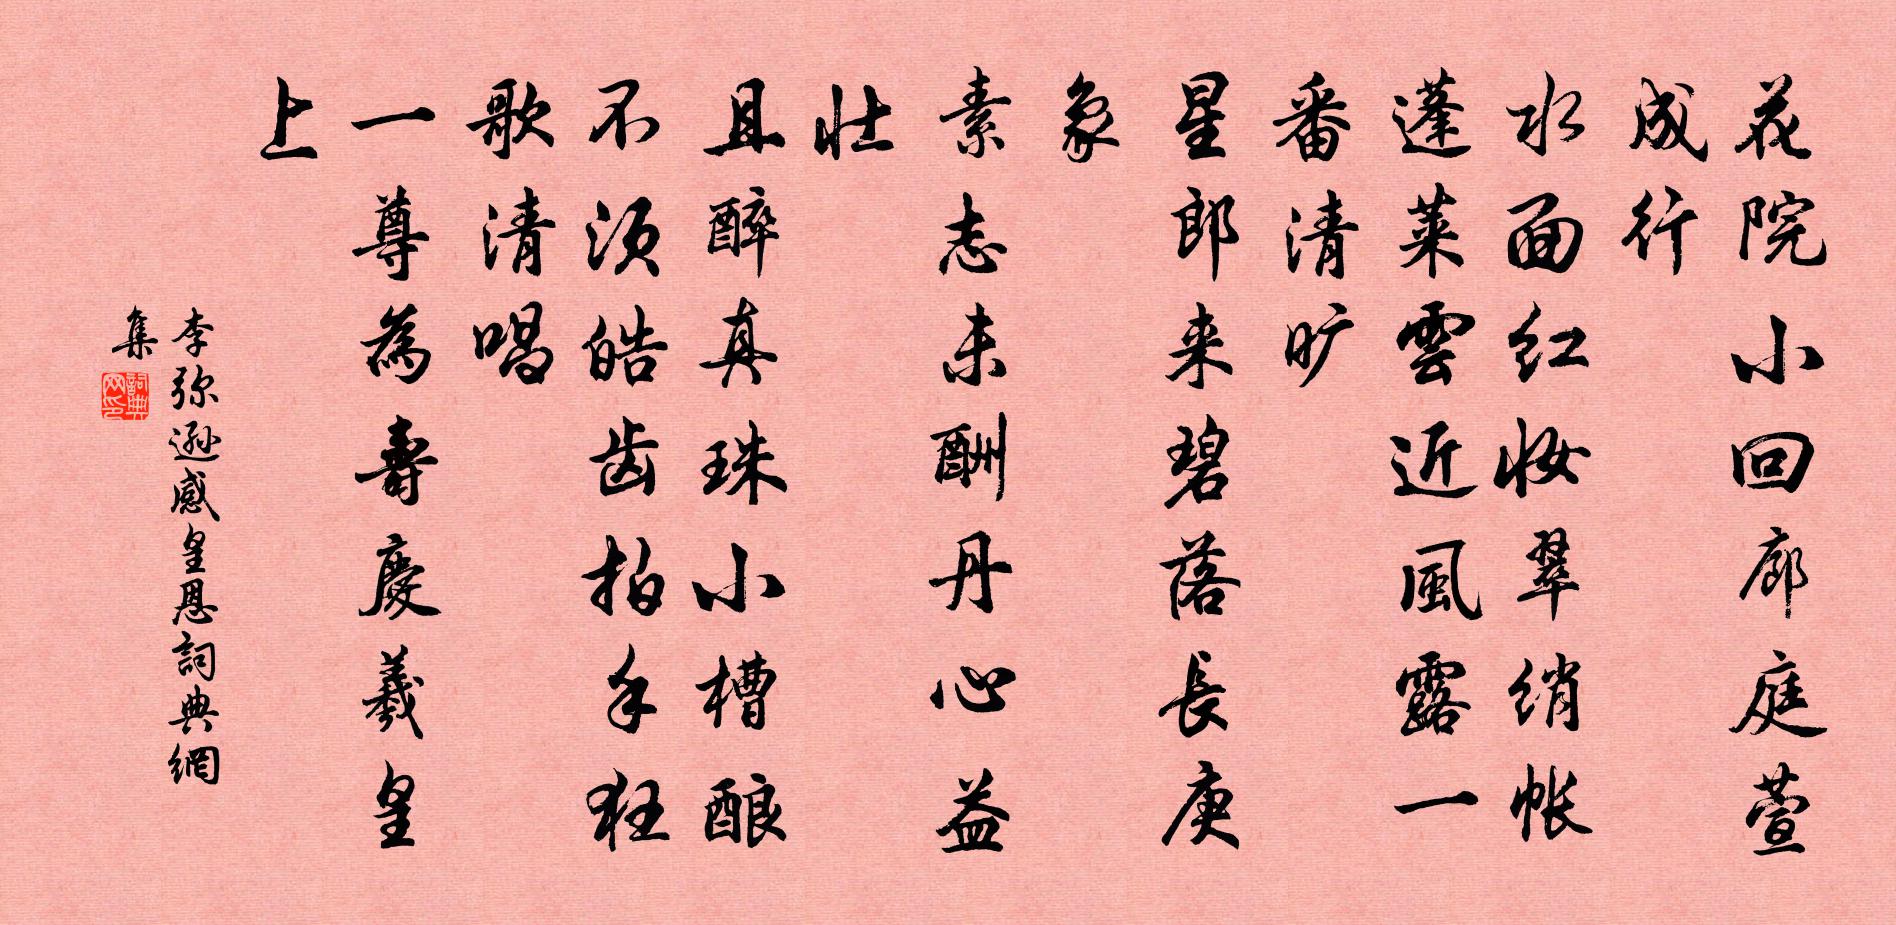 花院小回廊庭萱
成行
水面红妆翠绡帐
蓬莱雲近風露一
番清旷
星郎来碧落長庚
象
素志未酬丹心益
壮
且醉真珠小槽酿
不须皓齿拍手狂
歌清唱
一尊為壽慶羲皇
上
李弥遜感皇恩詞典網
集
詞典
网印